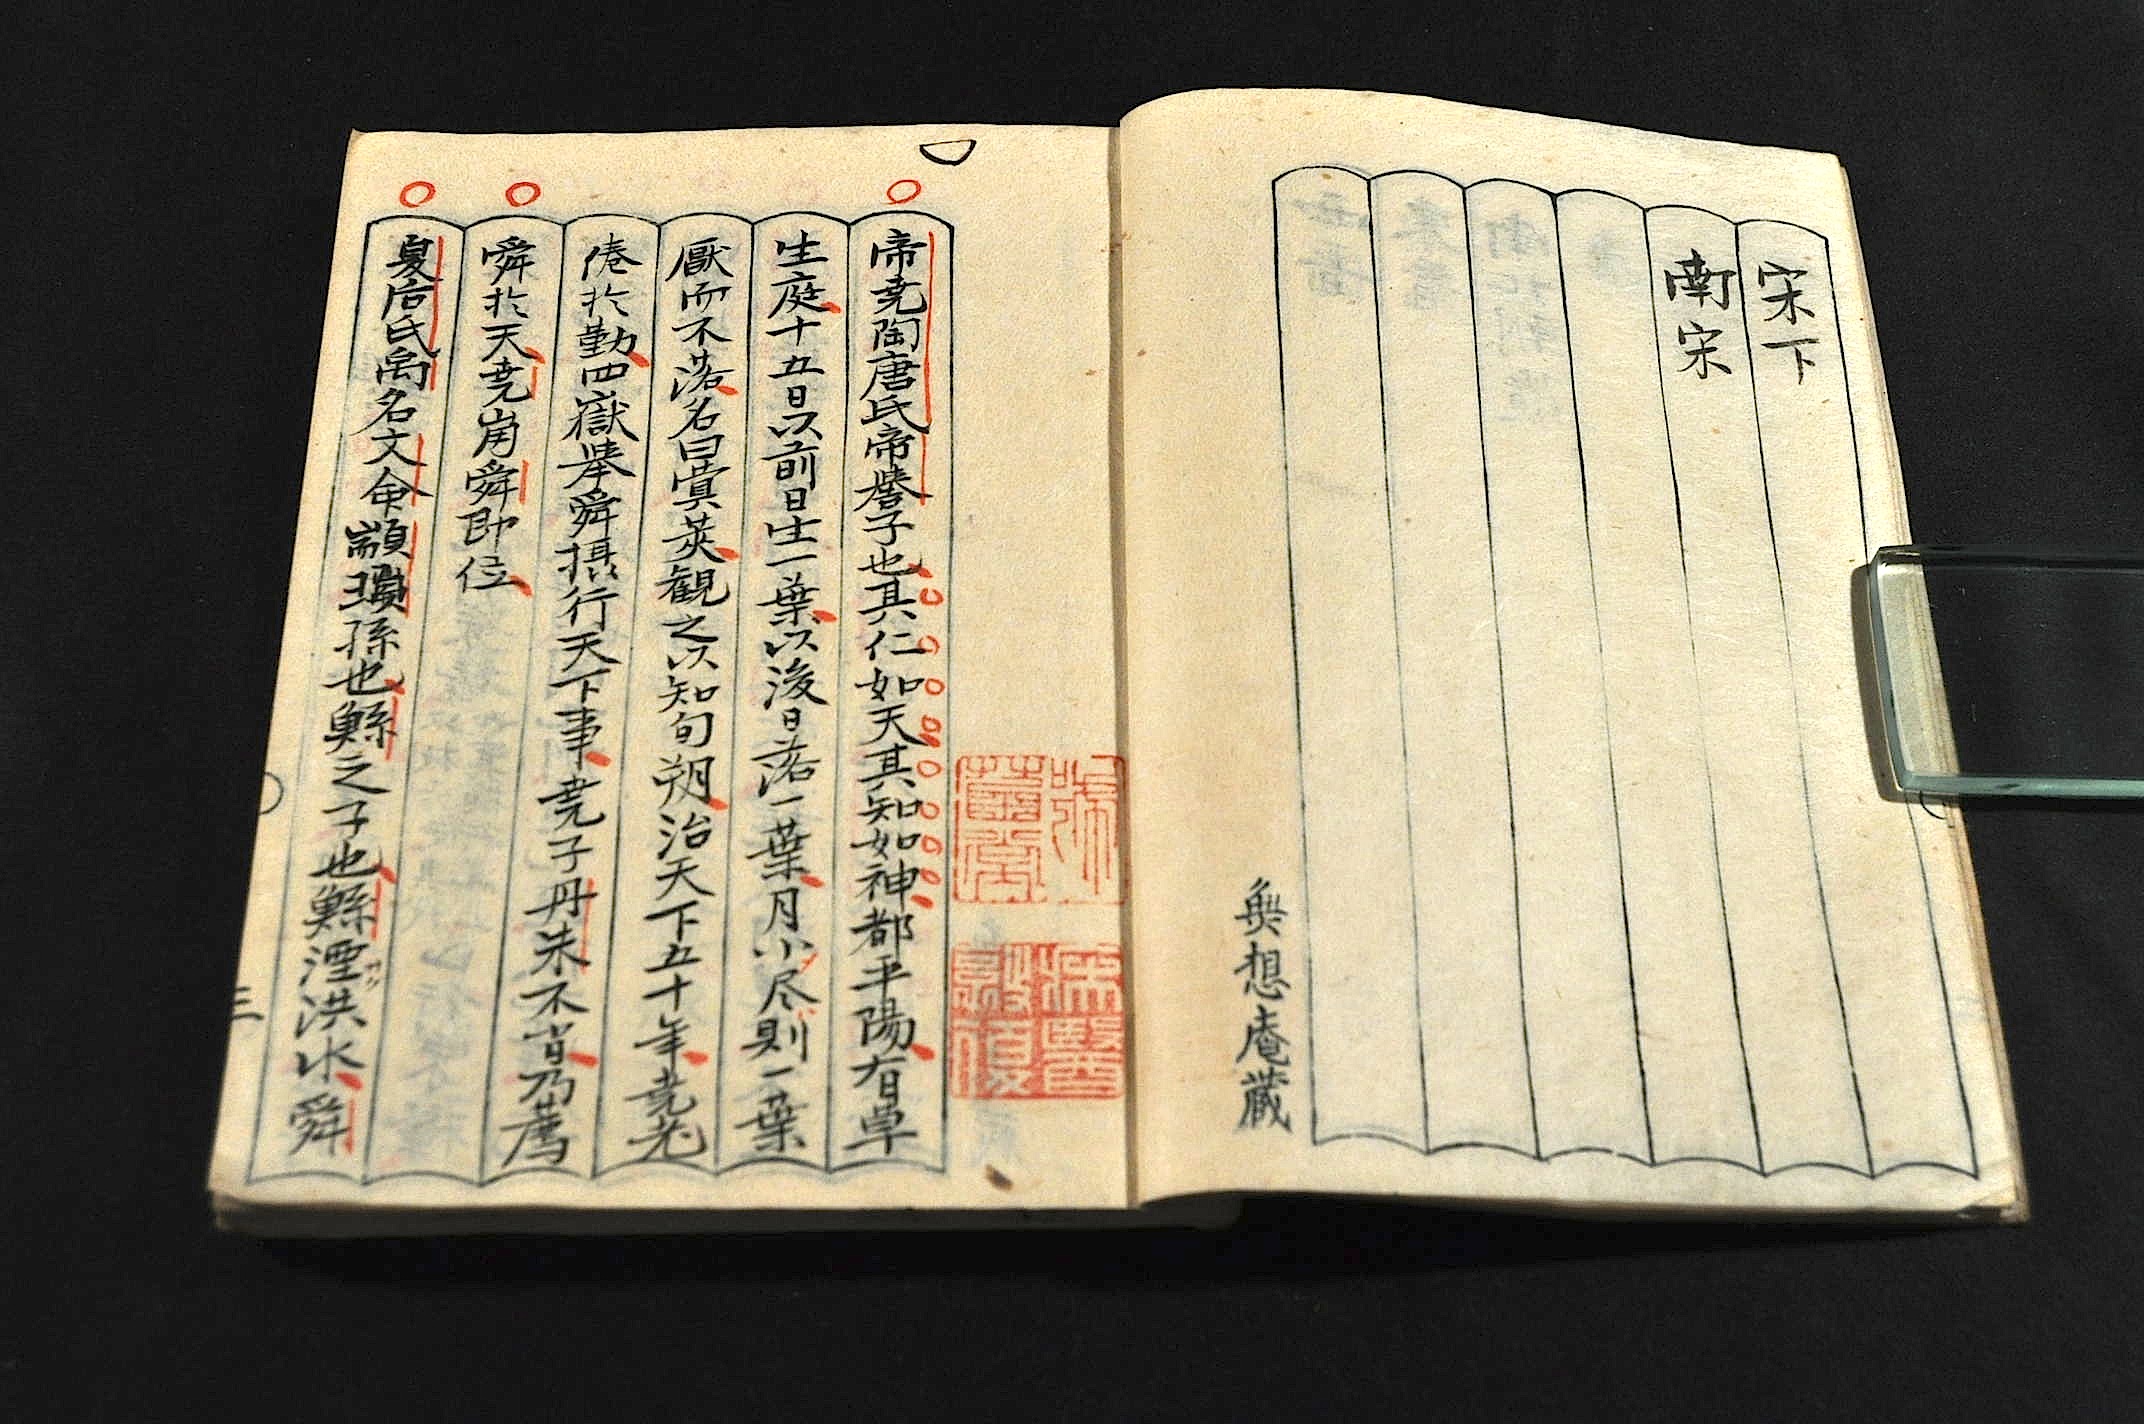 宋下
南宋
無想庵蔵
帝尭陶唐氏帝嚳子也其仁如天其知如神都平陽有草
生庭十五日以前日生一葉以後日落一葉月小尽則一葉
厭而不落名曰蓂莢観之以知旬朔治天下五十年尭老
倦於勤四嶽挙舜摂行天下事尭子丹朱不肖乃薦
舜於天尭崩舜即位
夏后氏禹名文命顓頊孫也鯀之子也鯀湮洪水舜
三